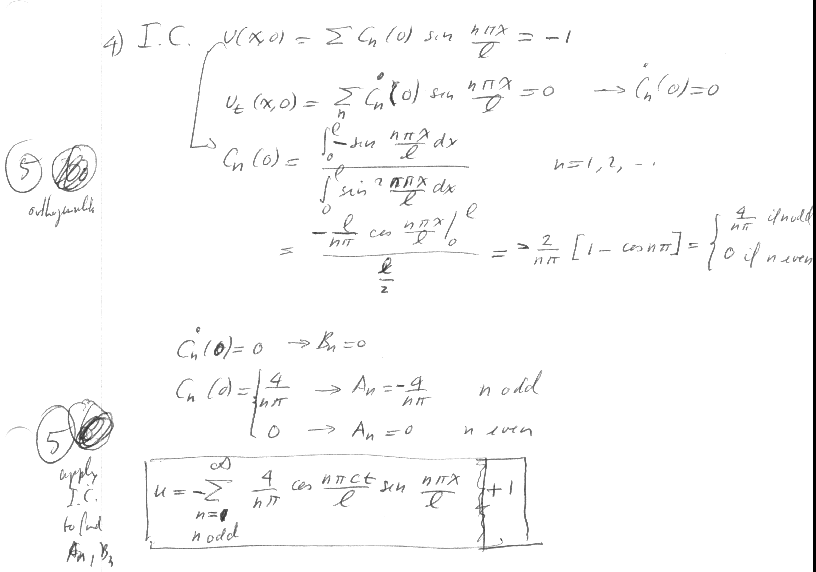 4) I.C. U(x,0) = Σ Cn(0) sin nπx/ℓ = -1
Ut(x,0) = Σn Ċn(0) sin nπx/ℓ = 0 → Ċn(0) = 0
5
orthogonality
Cn(0) = ∫0^ℓ -sin nπx/ℓ dx / ∫0^ℓ sin² nπx/ℓ dx n=1,2,...
= -ℓ/nπ cos nπx/ℓ |0^ℓ / ℓ/2 = - 2/nπ [1 - cos nπ] = { 4/nπ if n odd
0 if n even
Ċn(0) = 0 → Bn = 0
Cn(0) = { 4/nπ → An = -4/nπ n odd
0 → An = 0 n even
5
apply
I.C.
to find
An, Bn
u = -Σ n=1 ∞ n odd 4/nπ cos nπct/ℓ sin nπx/ℓ + 1